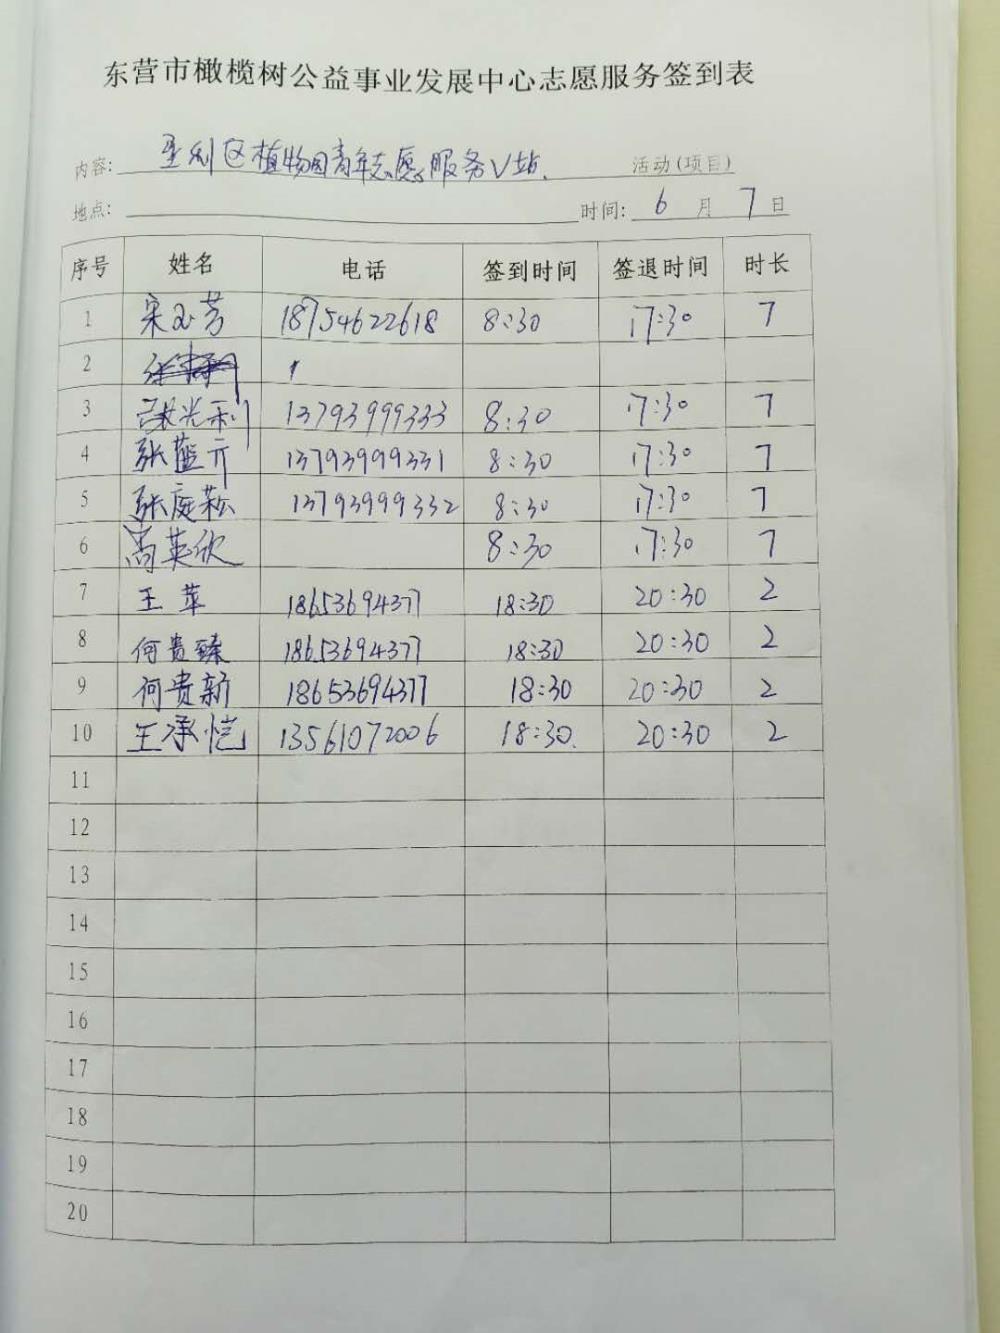 东营市橄榄树公益事业发展中心志愿服务签到表
内容: 垦利区植物园青年志愿服务V站. 活动(项目)
地点: 时间: 6 月 7 日
序号 姓名 电话 签到时间 签退时间 时长
1 宋玉芳 18754622618 8:30 17:30 7
2
3 张光利 13793999333 8:30 17:30 7
4 张蓝亓 13793999331 8:30 17:30 7
5 张庭菘 13793999332 8:30 17:30 7
6 尚英欣 8:30 17:30 7
7 王苹 18653694377 18:30 20:30 2
8 何贵臻 18653694377 18:30 20:30 2
9 何贵新 18653694377 18:30 20:30 2
10 王承恺 13561072006 18:30. 20:30 2
11
12
13
14
15
16
17
18
19
20